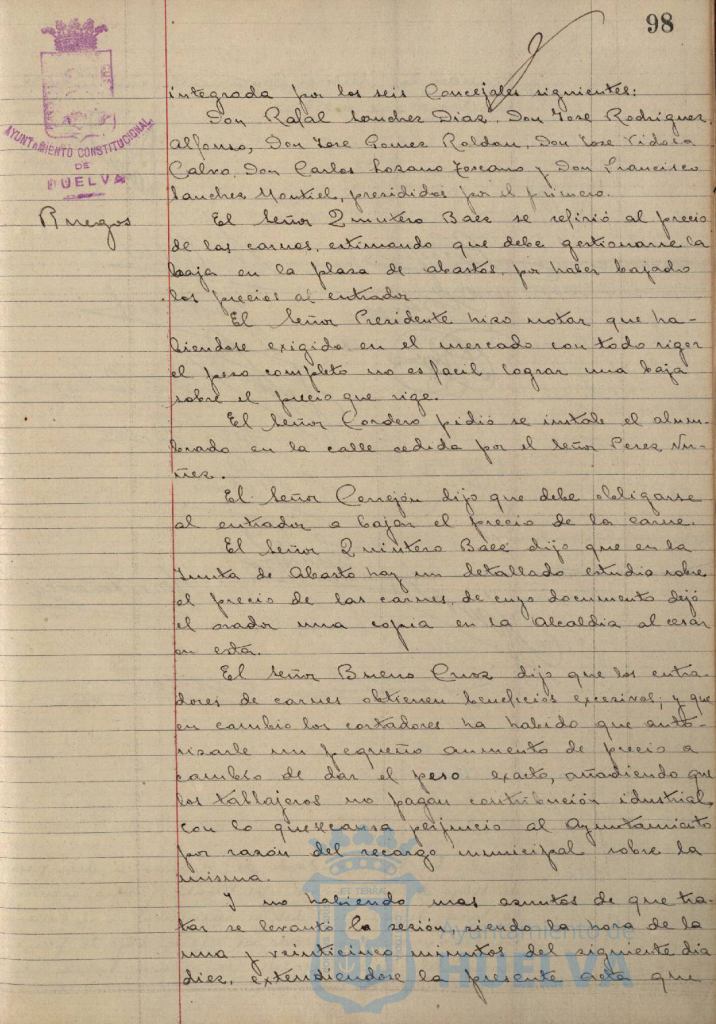 98
AYUNTAMIENTO CONSTITUCIONAL
DE
HUELVA
integrada por los seis Concejales siguientes:
Don Rafal Sanchez Diaz, Don Jose Rodriguez
Alfonso, Don Jose Gomez Roldan, Don Jose Vidosa
Calvo, Don Carlos Lozano Toscano y Don Francisco
Sanchez Montiel, presididos por el primero.
Ruegos
El Señor Quintero Baez se refirió al precio
de las carnes, estimando que debe gestionarse la
baja en la plaza de abastos, por haber bajado
los precios al entrador
El Señor Presidente hizo notar que ha-
biendose exigido en el mercado con todo rigor
el peso completo no es facil lograr una baja
sobre el precio que rige.
El Señor Cordero pidió se instale el alum-
brado en la calle cedida por el Señor Perez Nu-
ñez.
El Señor Cerrejón dijo que debe obligarse
al entrador a bajar el precio de la carne.
El Señor Quintero Baez dijo que en la
Junta de Abasto hay un detallado estudio sobre
el precio de las carnes, de cuyo documento dejó
el orador una copia en la Alcaldia al cesar
en esta.
El Señor Bueno Cruz dijo que los entra-
dores de carnes obtienen beneficios excesivos; y que
en cambio los cortadores ha habido que auto-
rizarle un pequeño aumento de precio a
cambio de dar el peso exacto, añadiendo que
los tablajeros no pagan contribución idustrial,
con lo que se causa perjuicio al Ayuntamiento
por razón del recargo municipal sobre la
misma.
Y no habiendo mas asuntos de que tra-
tar se levantó la sesión, siendo la hora de la
una y veinticinco minutos del siguiente dia
diez, extendiendose la presente acta que
Ayuntamiento
HUELVA